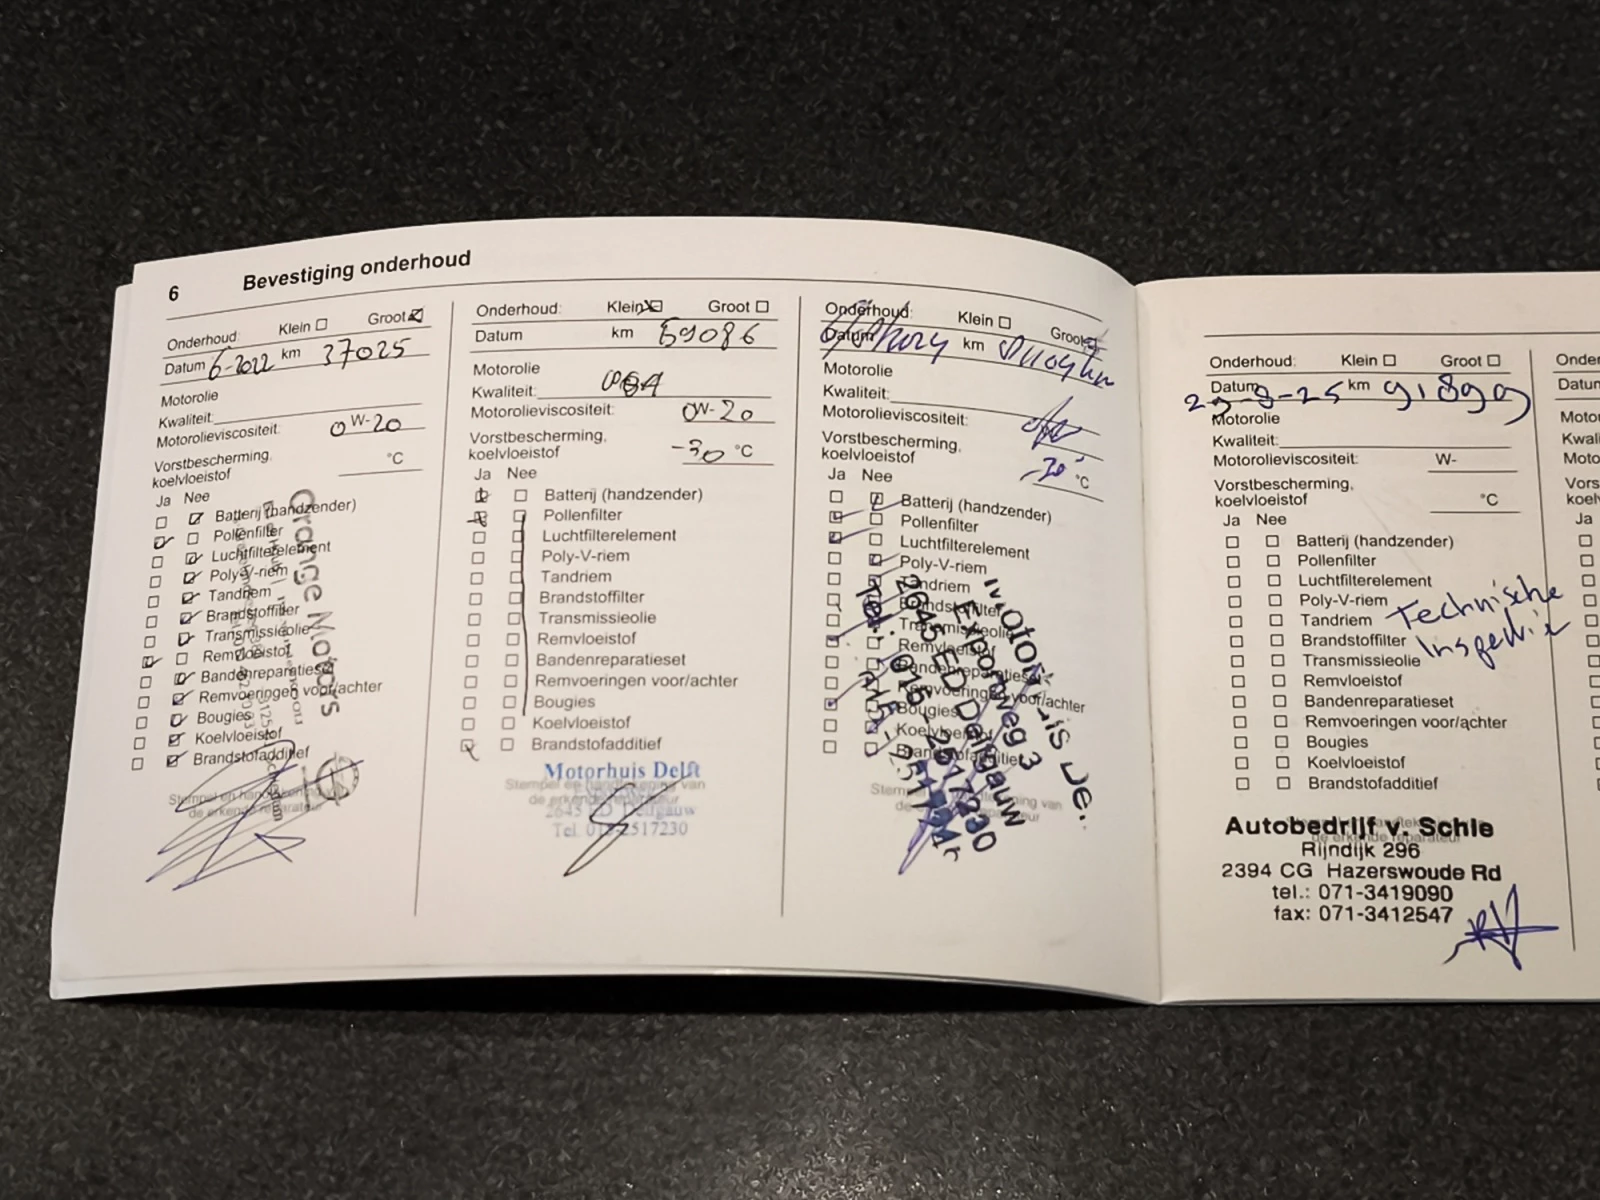 6 Bevestiging onderhoud
Onderhoud: Klein Groot
Datum 6-2022 km 37025
Motorolie
Kwaliteit:
Motorolieviscositeit: 0W-20
Vorstbescherming,
koelvloeistof °C
Ja Nee
Batterij (handzender)
Pollenfilter
Luchtfilterelement
Poly-V-riem
Tandriem
Brandstoffilter
Transmissieolie
Remvloeistof
Bandenreparatieset
Remvoeringen voor/achter
Bougies
Koelvloeistof
Brandstofadditief
Stempel en handtekening van
de erkende reparateur
Motors
Onderhoud: Klein Groot
Datum km 59086
Motorolie
Kwaliteit:
Motorolieviscositeit: 0W-20
Vorstbescherming,
koelvloeistof -30 °C
Ja Nee
Batterij (handzender)
Pollenfilter
Luchtfilterelement
Poly-V-riem
Tandriem
Brandstoffilter
Transmissieolie
Remvloeistof
Bandenreparatieset
Remvoeringen voor/achter
Bougies
Koelvloeistof
Brandstofadditief
Stempel en handtekening van
de erkende reparateur
Motorhuis Delft
2645 ED Delfgauw
Tel. 015-2517230
Onderhoud: Klein Groot
Datum km
Motorolie
Kwaliteit:
Motorolieviscositeit:
Vorstbescherming,
koelvloeistof -30 °C
Ja Nee
Batterij (handzender)
Pollenfilter
Luchtfilterelement
Poly-V-riem
Tandriem
Brandstoffilter
Transmissieolie
Remvloeistof
Bandenreparatieset
Remvoeringen voor/achter
Bougies
Koelvloeistof
Brandstofadditief
Motorhuis De
weg 3
2645 ED Delfgauw
Tel. 015-2517230
Onderhoud: Klein Groot
Datum 29-8-25 km 91899
Motorolie
Kwaliteit:
Motorolieviscositeit: W-
Vorstbescherming,
koelvloeistof °C
Ja Nee
Batterij (handzender)
Pollenfilter
Luchtfilterelement
Poly-V-riem
Tandriem
Brandstoffilter
Transmissieolie
Remvloeistof
Bandenreparatieset
Remvoeringen voor/achter
Bougies
Koelvloeistof
Brandstofadditief
Technische
Inspectie
de erkende reparateur
Autobedrijf v. Schie
Rijndijk 296
2394 CG Hazerswoude Rd
tel.: 071-3419090
fax: 071-3412547
Onder
Datu
Moto
Kwali
Moto
Vors
koel
Ja